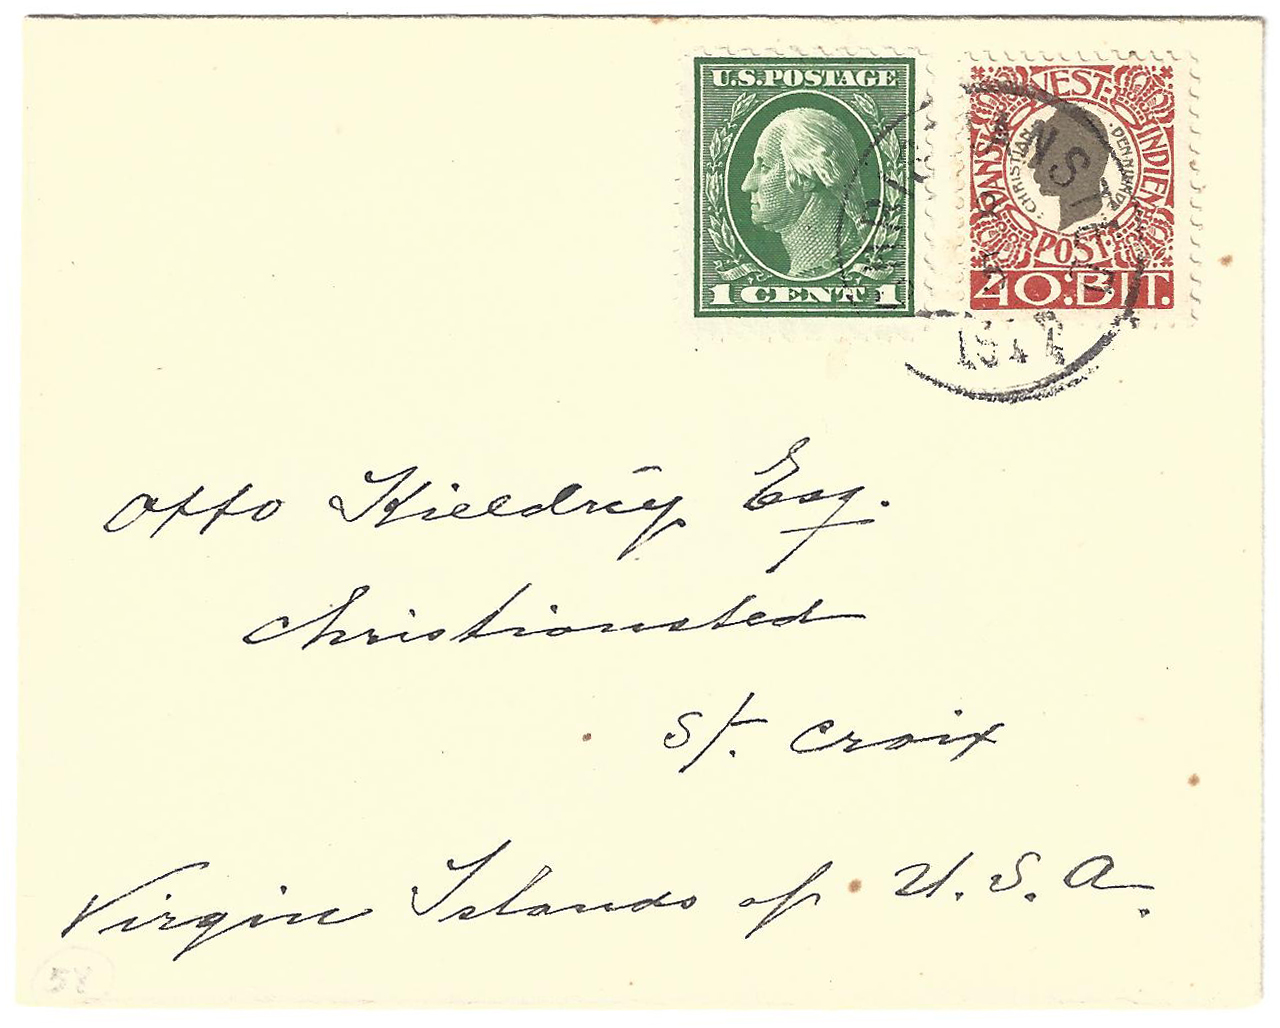 U.S. POSTAGE
1 CENT 1
DANSK VEST-INDIEN
CHRISTIAN DEN NIENDE
POST
40 BIT.
Otto
Esq.
Christiansted
St. Croix
Virgin Islands of U.S.A.
58